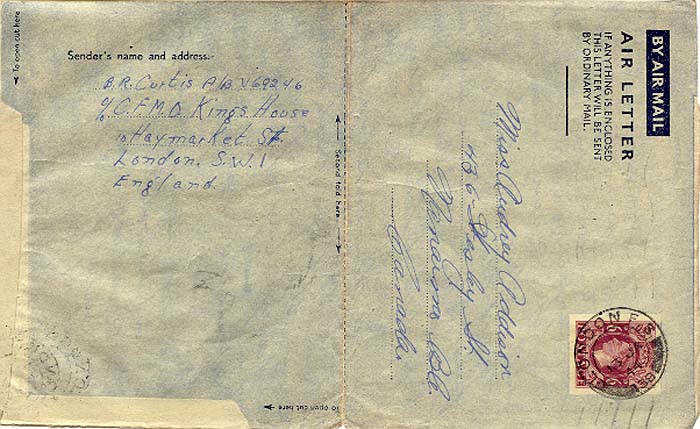 To open cut here
Sender's name and address:-
B.R. Curtis P/B V69246
c/o C.F.M.O. Kings House
10 Haymarket St.
London. S.W.1
England.
Second fold here
To open cut here
BY AIR MAIL
AIR LETTER
IF ANYTHING IS ENCLOSED
THIS LETTER WILL BE SENT
BY ORDINARY MAIL.
Miss Audrey Addison
436 St
Canada